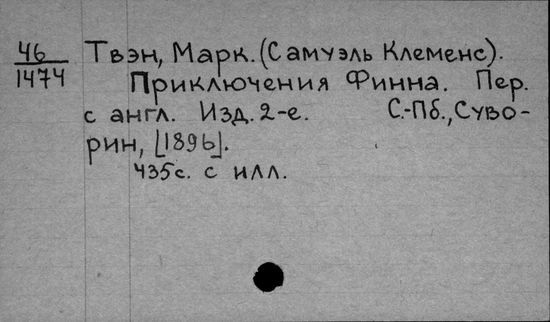 46
1474
Твэн, Марк. (Самуэль Клеменс).
Приключения Финна. Пер.
с англ. Изд. 2-е. С.-Пб., Суво-
рин, [1896].
435с. с илл.